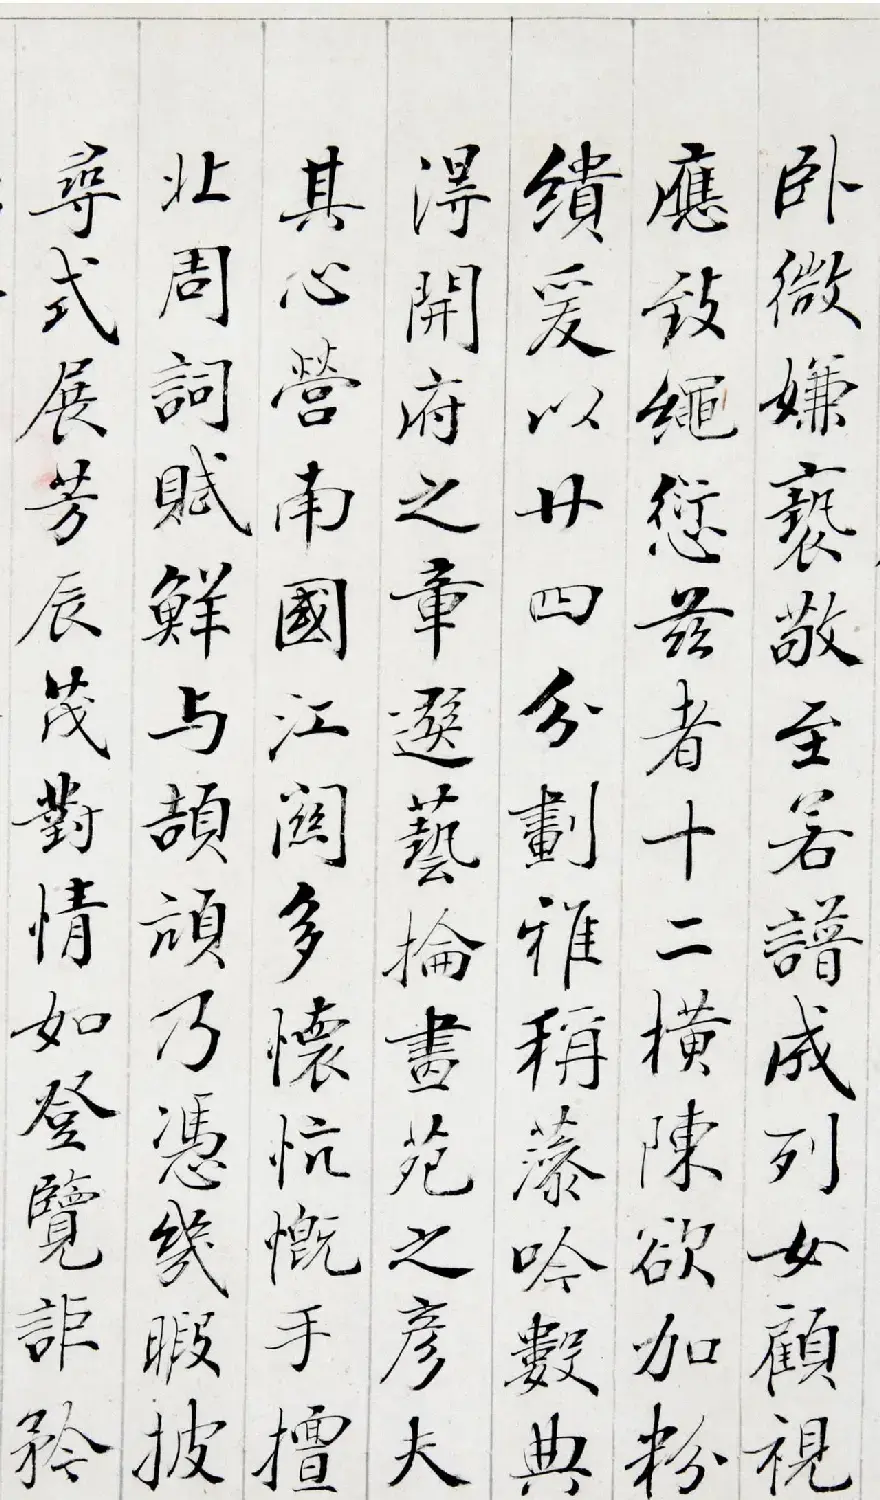 卧微嫌褻敬至若譜成列女顧視
應致繩愆茲者十二橫陳欲加粉
繢爰以廿四分劃雅稱藻吟數典
得開府之章選藝掄畫苑之彥夫
其心營南國江關多懷忼慨手擅
北周詞賦鮮与頡頏乃憑幾暇披
尋式展芳辰茂對情如登覽詎矜